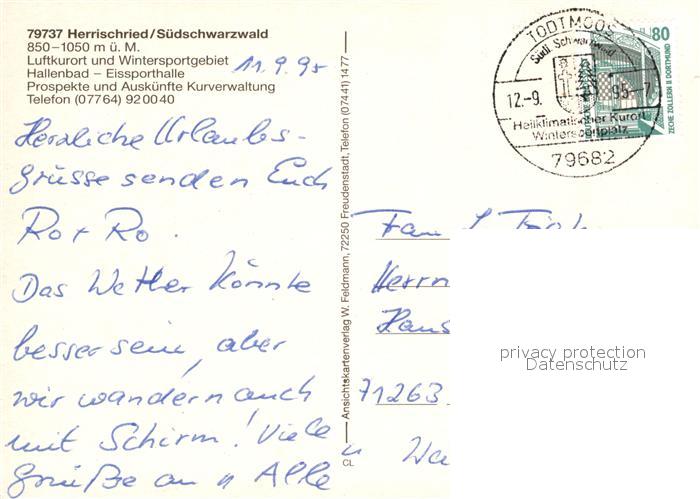 79737 Herrischried/Südschwarzwald
850–1050 m ü. M.
Luftkurort und Wintersportgebiet
Hallenbad – Eissporthalle
Prospekte und Auskünfte Kurverwaltung
Telefon (07764) 920040
11.9.95
Herzliche Urlaubs-
grüsse senden Euch
Ro + Ro.
Das Wetter könnte
besser sein, aber
wir wandern auch
mit Schirm! Viele
Grüße an Alle
Ansichtskartenverlag W. Feldmann, 72250 Freudenstadt, Telefon (07441) 1477
CL
TODTMOOS
Südl. Schwarzwald
12.-9. 95.-7
Heilklimatischer Kurort
Wintersportplatz
79682
80
DEUTSCHE BUNDESPOST
ZECHE ZOLLERN II DORTMUND
Herrn
Hans
71263
privacy protection
Datenschutz